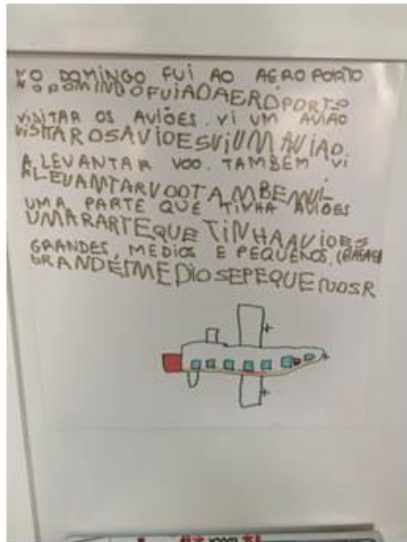 NO DOMINGO FUI AO AEROPORTO
NODOMINDOFUIAOAEROPORTO
VISITAR OS AVIÕES. VI UM AVIÃO
VISITAROSAVIOESVIUMAVIAO.
A LEVANTAR VOO. TAMBÉM VI
ALEVAMTARVOOTAMBEMVI
UMA PARTE QUE TINHA AVIÕES
UMARARTEQUETINHAAVIOES
GRANDES, MÉDIOS E PEQUENOS.
GRANDESMEDIOSEPEQUENOSR